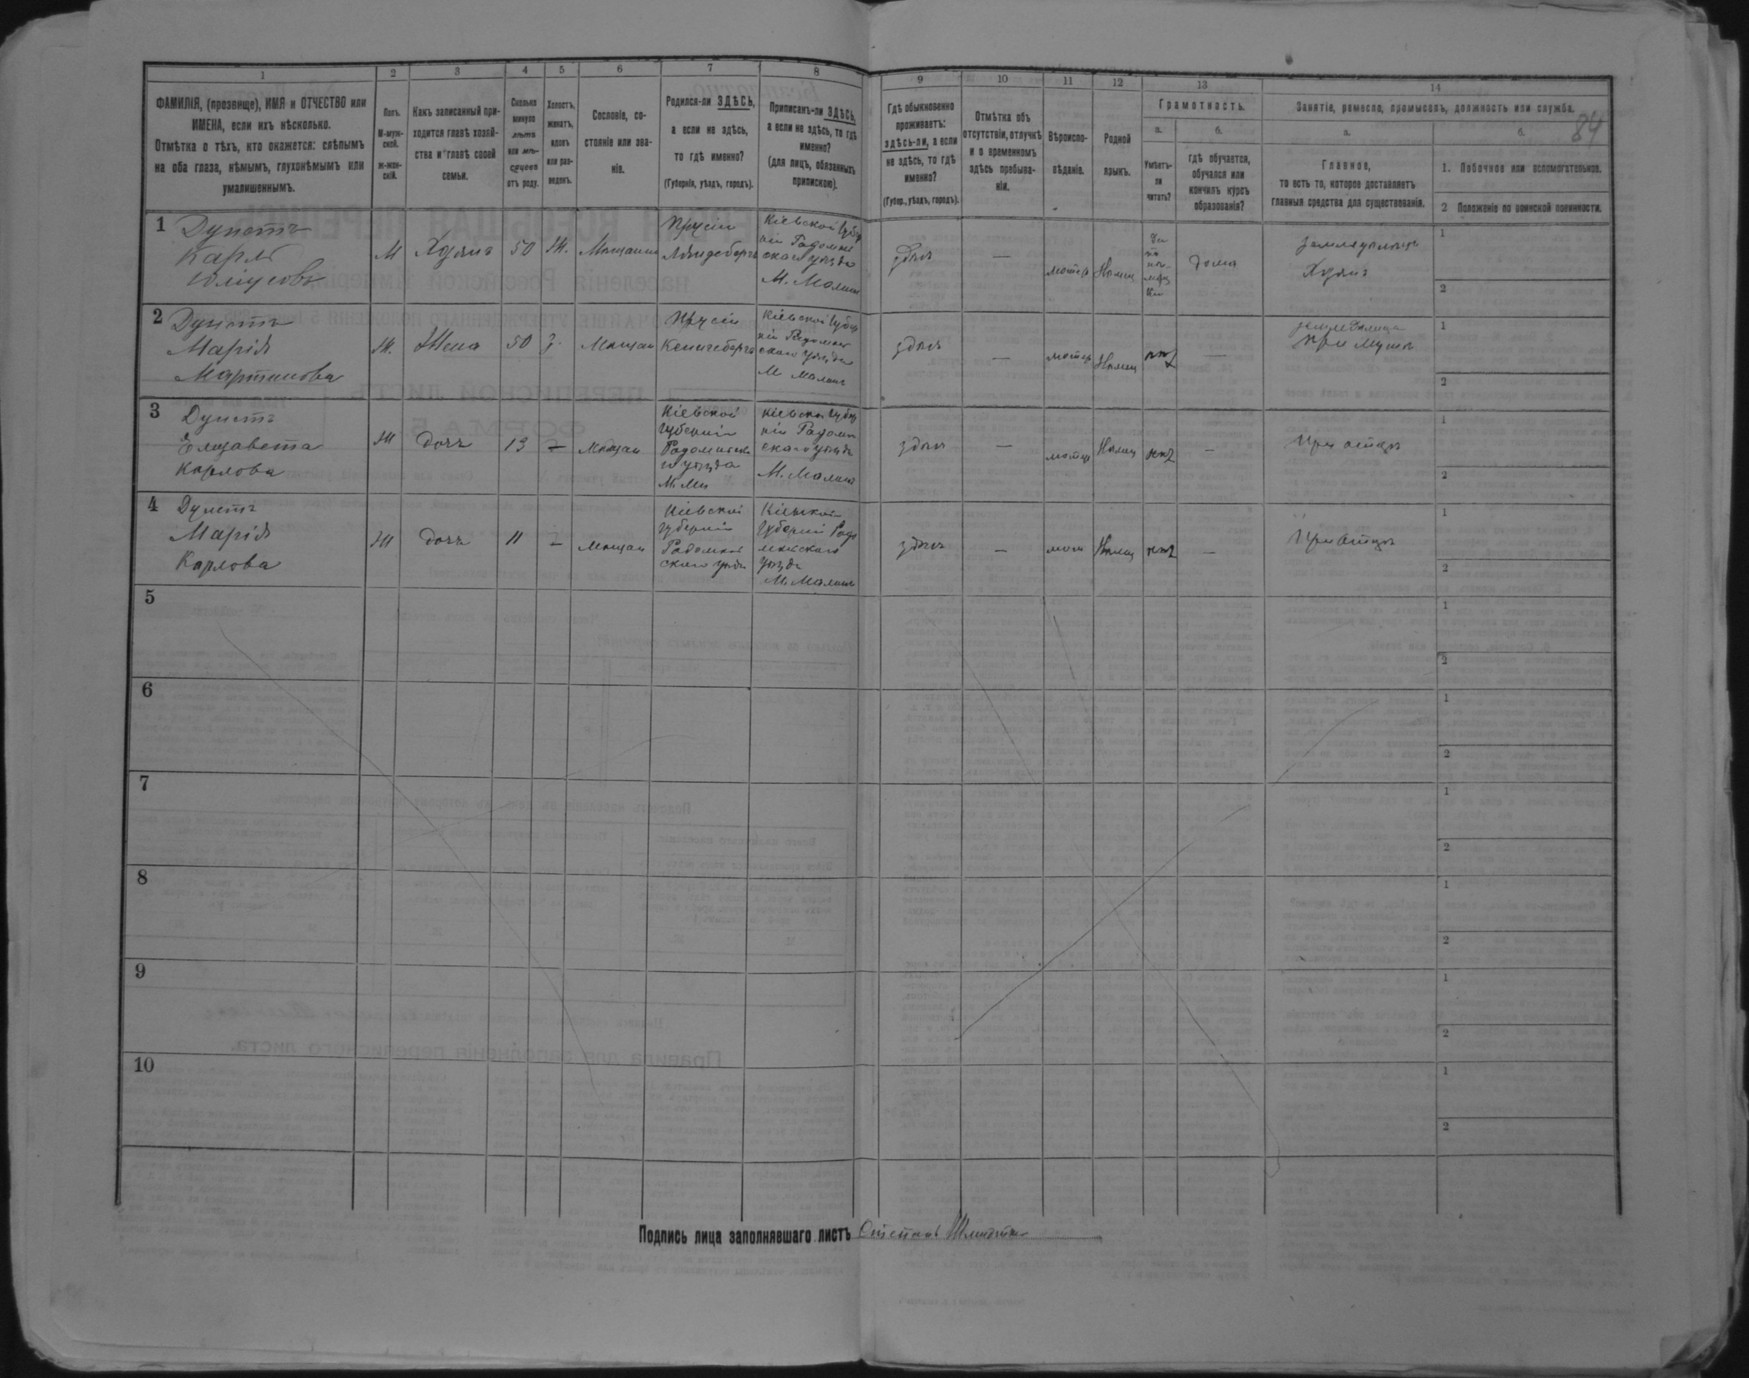 1 2 3 4 5 6 7 8 9 10 11 12 13 14
84
ФАМИЛІЯ, (прозвище), ИМЯ и ОТЧЕСТВО или
ИМЕНА, если ихъ нѣсколько.
Отмѣтка о тѣхъ, кто окажется: слѣпымъ
на оба глаза, нѣмымъ, глухонѣмымъ или
умалишеннымъ.
Полъ.
М-муж-
ской.
Ж-жен-
скій.
Какъ записанный при-
ходится главѣ хозяй-
ства и главѣ своей
семьи.
Сколько
минуло
лѣтъ
или мѣ-
сяцевъ
отъ роду.
Холостъ,
женатъ,
вдовъ
или раз-
веденъ.
Сословіе, со-
стояніе или зва-
ніе.
Родился-ли ЗДѢСЬ,
а если не здѣсь,
то гдѣ именно?
(Губернія, уѣздъ, городъ).
Приписанъ-ли ЗДѢСЬ,
а если не здѣсь, то гдѣ
именно?
(для лицъ, обязанныхъ
припискою).
Гдѣ обыкновенно
проживаетъ:
здѣсь-ли, а если
не здѣсь, то гдѣ
именно?
(Губер., уѣздъ, городъ).
Отмѣтка объ
отсутствіи, отлучкѣ
и о временномъ
здѣсь пребыва-
ніи.
Вѣроиспо-
вѣданіе.
Родной
языкъ.
Грамотность.
а.
Умѣетъ-
ли
читать?
б.
гдѣ обучается,
обучался или
кончилъ курсъ
образованія?
Занятіе, ремесло, промыселъ, должность или служба.
а.
Главное,
то есть то, которое доставляетъ
главныя средства для существованія.
б.
1. Побочное или вспомогательное.
2 Положеніе по воинской повинности.
1 Дунстъ
Карлъ
Юліусовъ
М
Хозяинъ
50
Ж.
Мѣщанинъ
Прусіи
Кіевской Губер
ніи Радомы
скаго уѣзда
М. Малинъ
здѣсь
—
Нѣмец
дома
Земледѣлецъ
Хозяинъ
1
2
2 Дунстъ
Марія
Мартинова
Ж.
Жена
50
З.
Мѣщан
Прусіи
Кенигсбергъ
Кіевской Губер
ніи Радомы
скаго уѣзда
М Малинъ
здѣсь
—
Нѣмец
нѣт
—
при мужѣ
1
2
3 Дунстъ
Елизавета
Карлова
Ж
дочь
13
—
Мѣщан
Кіевской
губерніи
Радомысль
уѣзда
М. Ма
Кіевск Губер
ніи Радомы
скаго уѣзда
М. Малинъ
здѣсь
—
Нѣмец
нѣт
—
При отцѣ
1
2
4 Дунстъ
Марія
Карлова
Ж
дочь
11
—
Мѣщан
Кіевской
губерніи
Радомыс
скаго уѣзда
Кіевской
Губерніи Радо
мысскаго
уѣзда
М. Малинъ
здѣсь
—
Нѣмец
нѣт
—
При отцѣ
1
2
5
1
2
6
1
2
7
1
2
8
1
2
9
1
2
10
1
2
Подпись лица заполнявшаго листъ